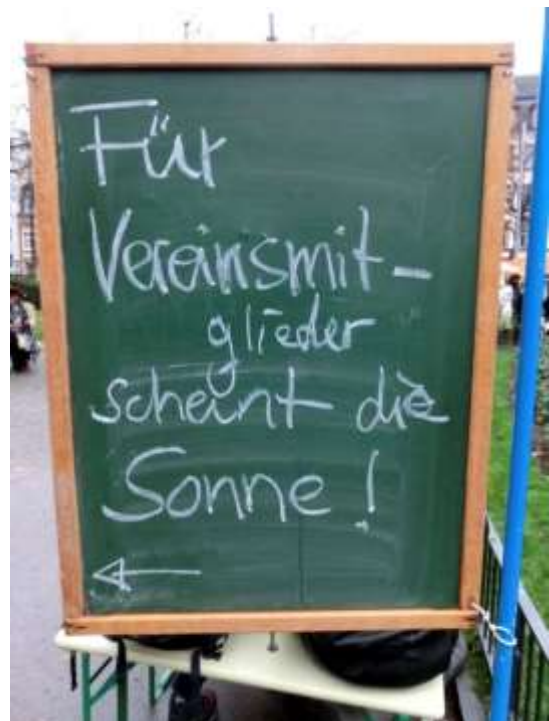 Für
Vereinsmit-
glieder
scheint die
Sonne!